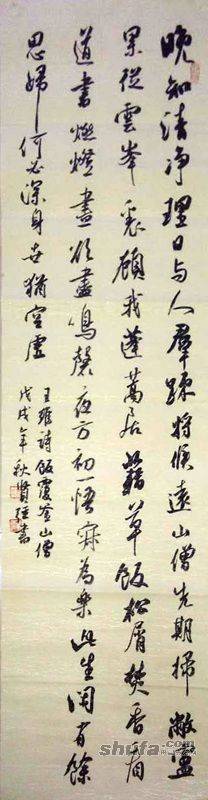 晚知清净理日与人羣疎将候遠山僧先期掃敝廬
果從雲峯裏顧我蓬蒿居藉草飯松屑焚香看
道書燃燈晝欲盡鳴磬夜方初一悟寂為樂此生閑有餘
思歸何必深身世猶空虛
王維詩飯覆釜山僧
戊戌年秋賢强書
shufa.com